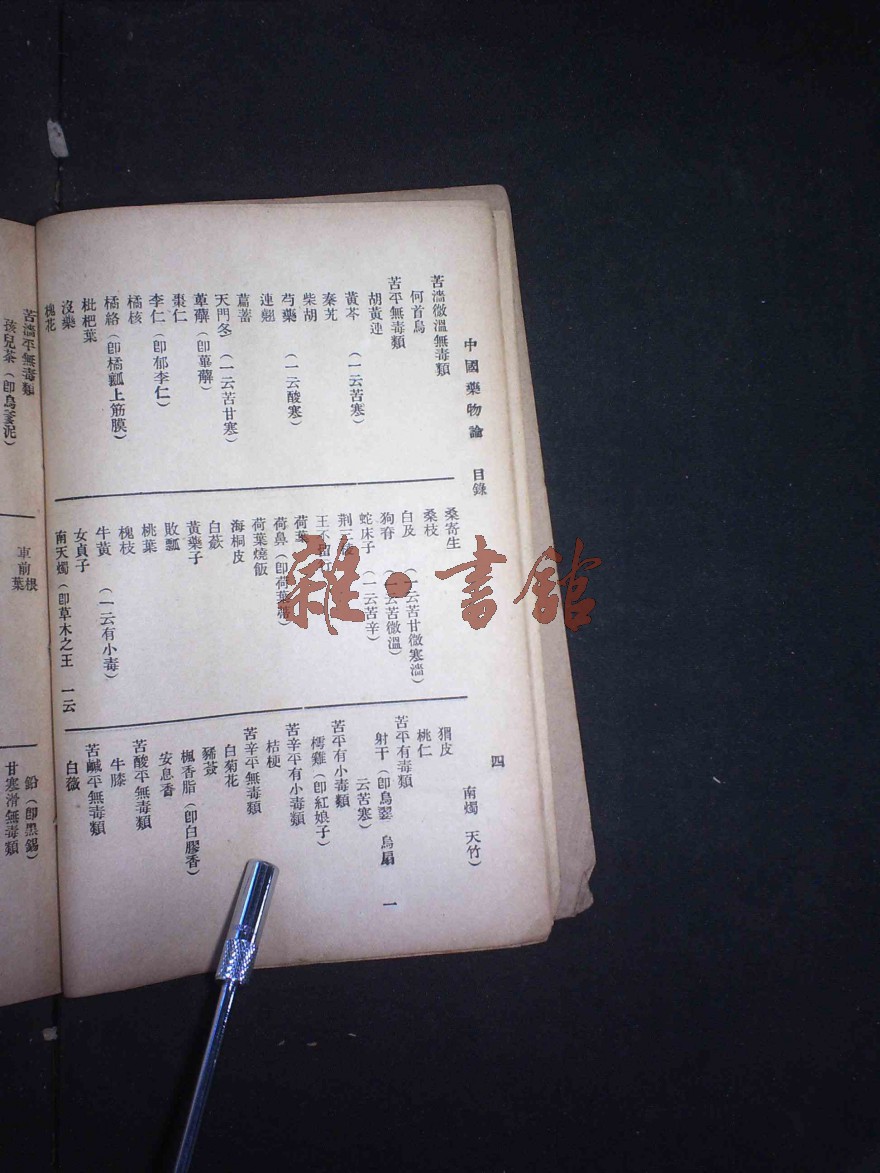 中國藥物論 目錄 四
苦濇微溫無毒類
何首烏
苦平無毒類
胡黃連
黃芩(一云苦寒)
秦艽
柴胡
芍藥(一云酸寒)
連翹
萹蓄
天門冬(一云苦甘寒)
棗仁
李仁(卽郁李仁)
橘核
橘絡(卽橘瓤上筋膜)
枇杷葉
沒藥
槐花
桑寄生
桑枝
白及(一云苦甘微寒濇)
狗脊(一云苦微溫)
蛇床子(一云苦辛)
荆三
王不
荷葉
荷鼻(卽荷葉蒂)
荷葉燒飯
海桐皮
白蘞
黃藥子
敗瓢
桃葉
槐枝
牛黃(一云有小毒)
女貞子
南天燭(卽草木之王 一云
南燭 天竹)
猬皮
桃仁
苦平有毒類
射干(卽烏翣 烏扇 一
云苦寒)
苦平有小毒類
樗雞(卽紅娘子)
苦辛平有小毒類
桔梗
苦辛平無毒類
白菊花
豨薟
楓香脂(卽白膠香)
安息香
苦酸平無毒類
牛膝
苦鹹平無毒類
白薇
苦濇平無毒類
孩兒茶(卽烏爹泥)
車前葉
根
鉛(卽黑錫)
甘寒滑無毒類
雜·書館